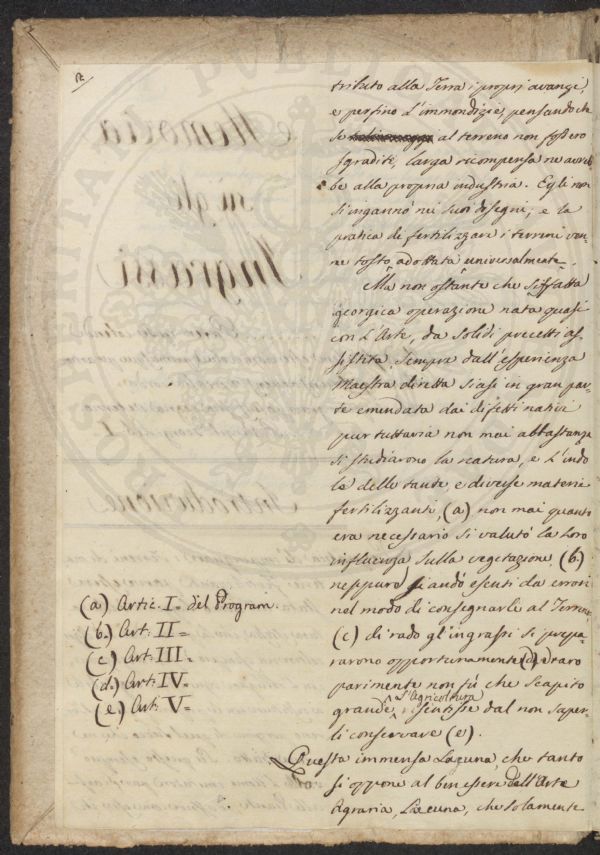 2.
tributo alla Terra i propri avanzi,
e perfino L'immondizie, pensando che
se al terreno non fossero
sgradite, larga ricompensa ne avreb=
be alla propria industria. Egli non
s'ingannò nei suoi disegni, e la
pratica di fertilizzare i terreni ven=
ne tosto adottata universalmente.
Ma non ostante che siffatta
georgica operazione nata quasi
con L'Arte, da solidi precetti as=
sistita, sempre dall'esperienza
Maestra diretta siasi in gran par=
te emendata dai difetti nativi
pur tuttavia non mai abbastanza
si studiarono la natura, e L'indo
le delle tante e diverse materie
fertilizzanti, (a) non mai quanto
era necessario si valutò la loro
influenza sulla vegetazione, (b.)
neppure siando esenti da errori
nel modo di consegnarle al Terreno
(c) di rado gl'ingrassi si prepa=
rarono opportunamente (d) e raro
parimente non fù che scapito
grande, L'Agricoltura risentisse dal non saper=
li conservare (e).
Questa immensa Lacuna, che tanto
si oppone al ben essere dell'Arte
Agraria, Lacuna, che solamente
(a) Artic. I= del Program.
(b.) Art: II=
(c) Art: III=
(d.) Art: IV=
(e) Art: V=